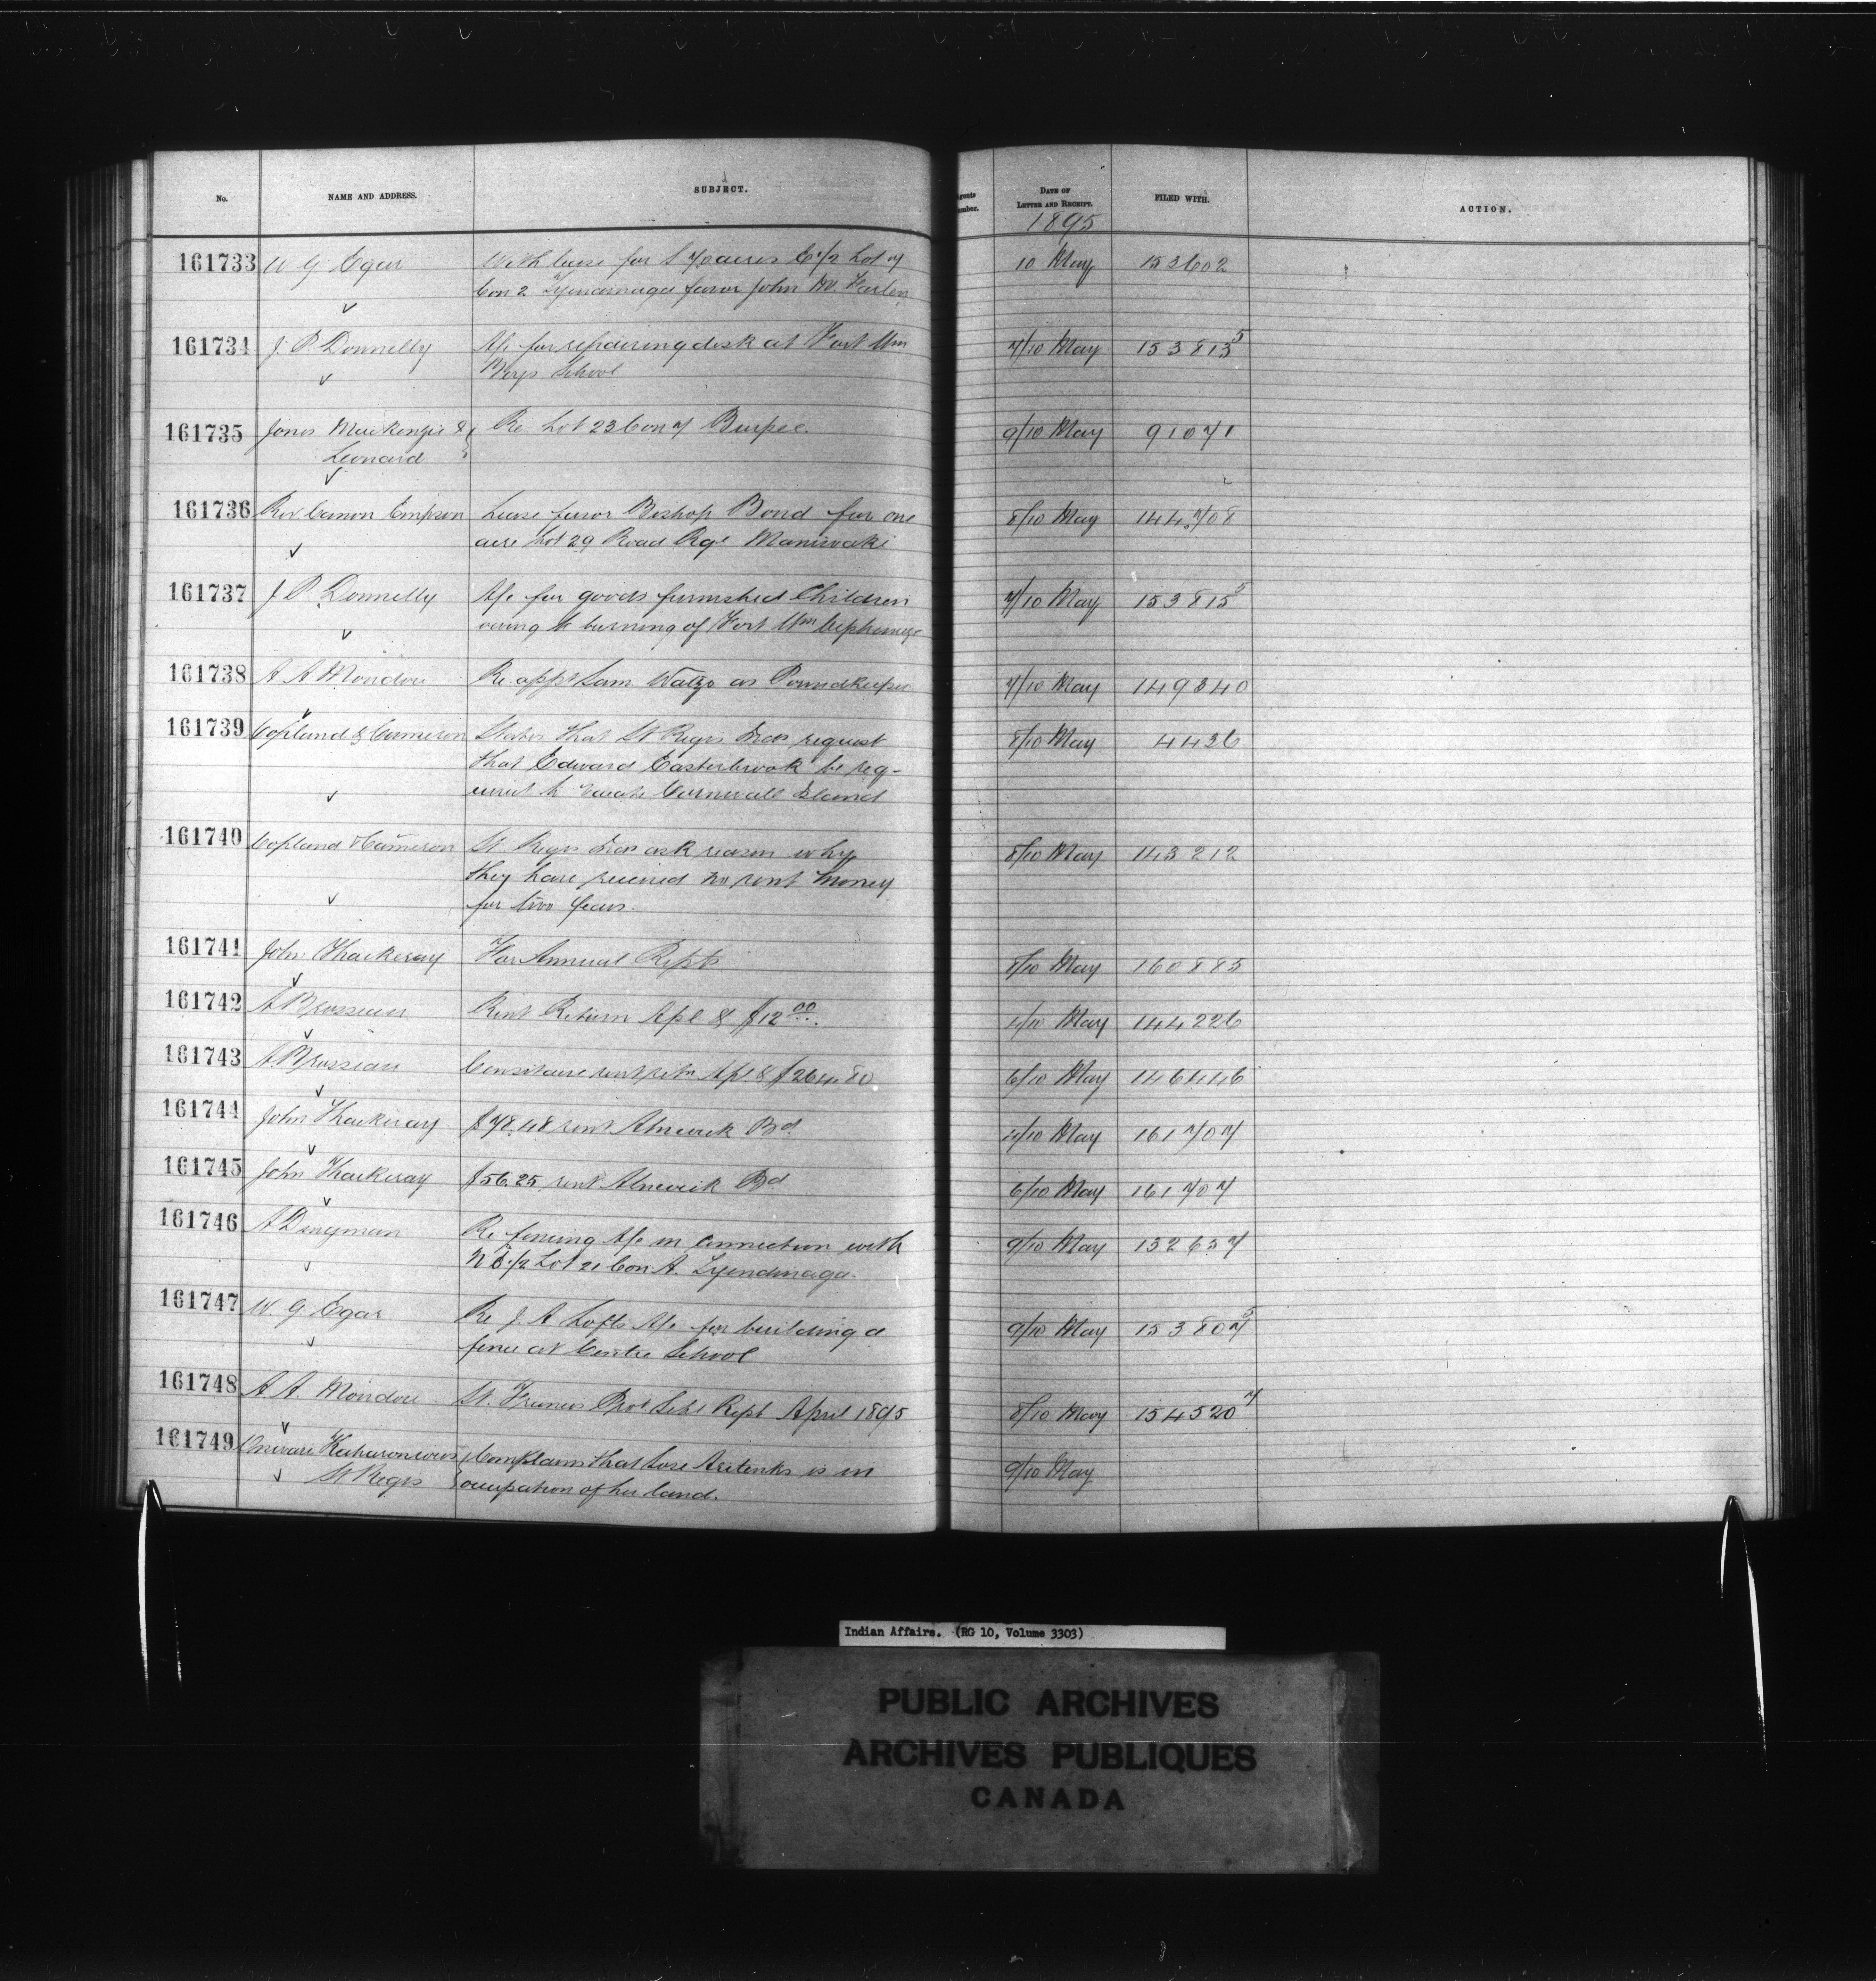 No. NAME AND ADDRESS. SUBJECT. Agents Number. DATE OF LETTER AND RECEIPT. FILED WITH. ACTION.
1895
161733 W G Egar With lease for S 70 acres E 1/2 Lot 7 10 May 153602
Con 2 Tyendinaga favor John
161734 J. P. Donnelly A/c for repairing desk at Fort Wm 7/10 May 153813 5
Boys School
161735 Jones Mackenzie & Re Lot 23 Con 7 Burpee. 9/10 May 91071
Leonard
161736 Rev Canon Empson Lease favor Bishop Bond for one 8/10 May 144708
acre Lot 29 Road Rge Maniwaki
161737 J P Donnelly A/c for goods furnished Children 7/10 May 153815 5
owing to burning of Fort Wm Orphanage
161738 A A Mondou Re appt Sam Watzo as Poundkeeper 7/10 May 149340
161739 Copland & Cameron States that St Regis Inds request 8/10 May 4426
that Edward Easterbrook be req-
uired to vacate Cornwall Island
161740 Copland & Cameron St. Regis Inds ask reason why 8/10 May 143212
they have received no rent money
for two years.
161741 John Thackeray For Annual Repts 8/10 May 160885
161742 A Brosseau Rent Return Apl & $12 00 4/10 May 144226
161743 A. Brosseau Censitaire rent retn Apl. & $264.80 6/10 May 146446
161744 John Thackeray $78.48 rent Alnwick Bd. 4/10 May 161707
161745 John Thackeray $56.25 rent Alnwick Bd 6/10 May 161707
161746 A Dingman Re fencing A/c in connection with 9/10 May 132657
N E 1/2 Lot 21 Con A. Tyendinaga.
161747 W. G. Egar Re J. A Lofts A/c for building a 9/10 May 153807 5
fence at Centre School
161748 A A. Mondou St. Francis Prot Schl Rept April 1895 8/10 May 154520 7
161749 Complains that Lose is in 9/10 May
St Regis occupation of her land.
Indian Affairs. (RG 10, Volume 3303)
PUBLIC ARCHIVES
ARCHIVES PUBLIQUES
CANADA